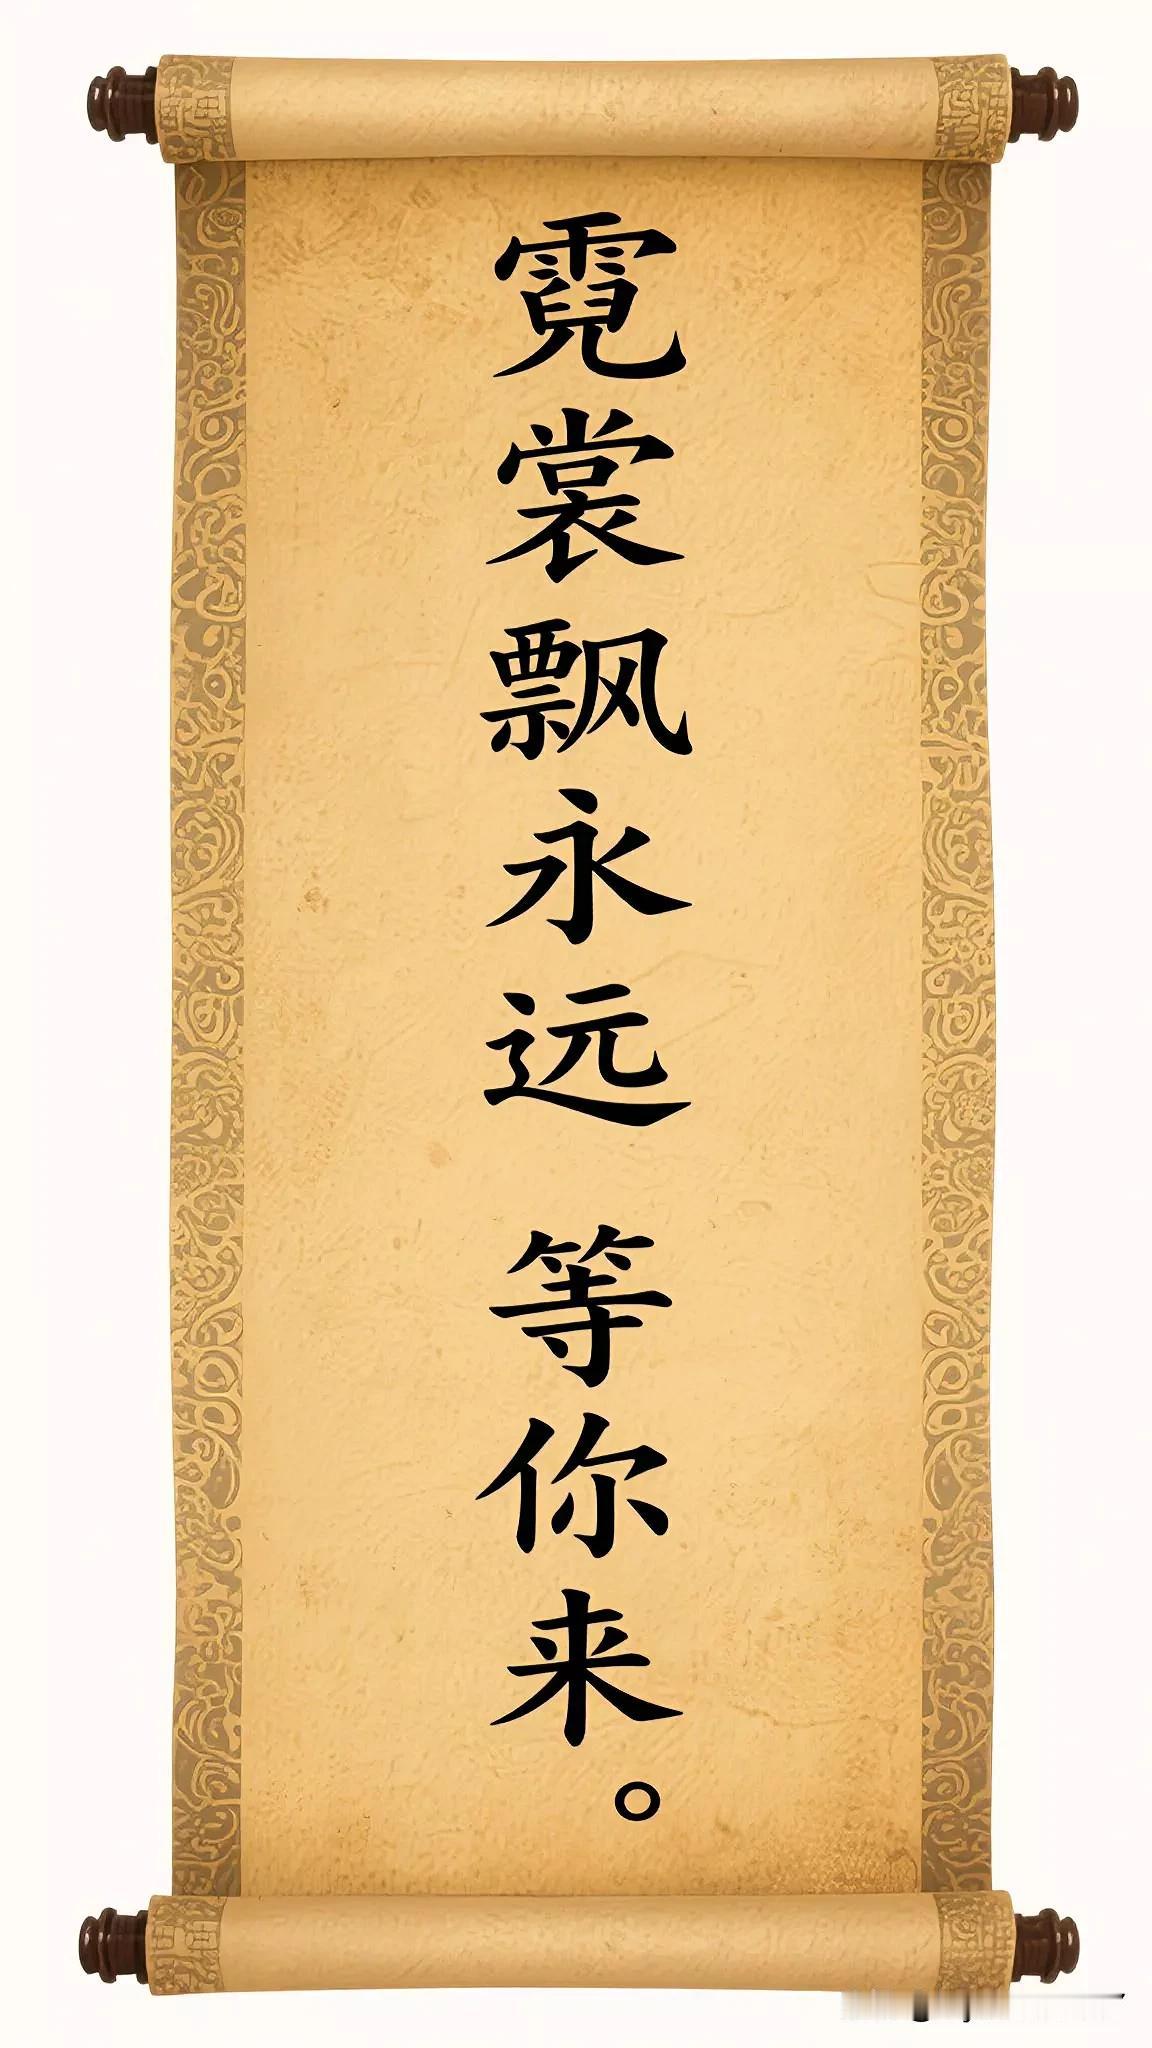 霓裳飘永远 等你来。